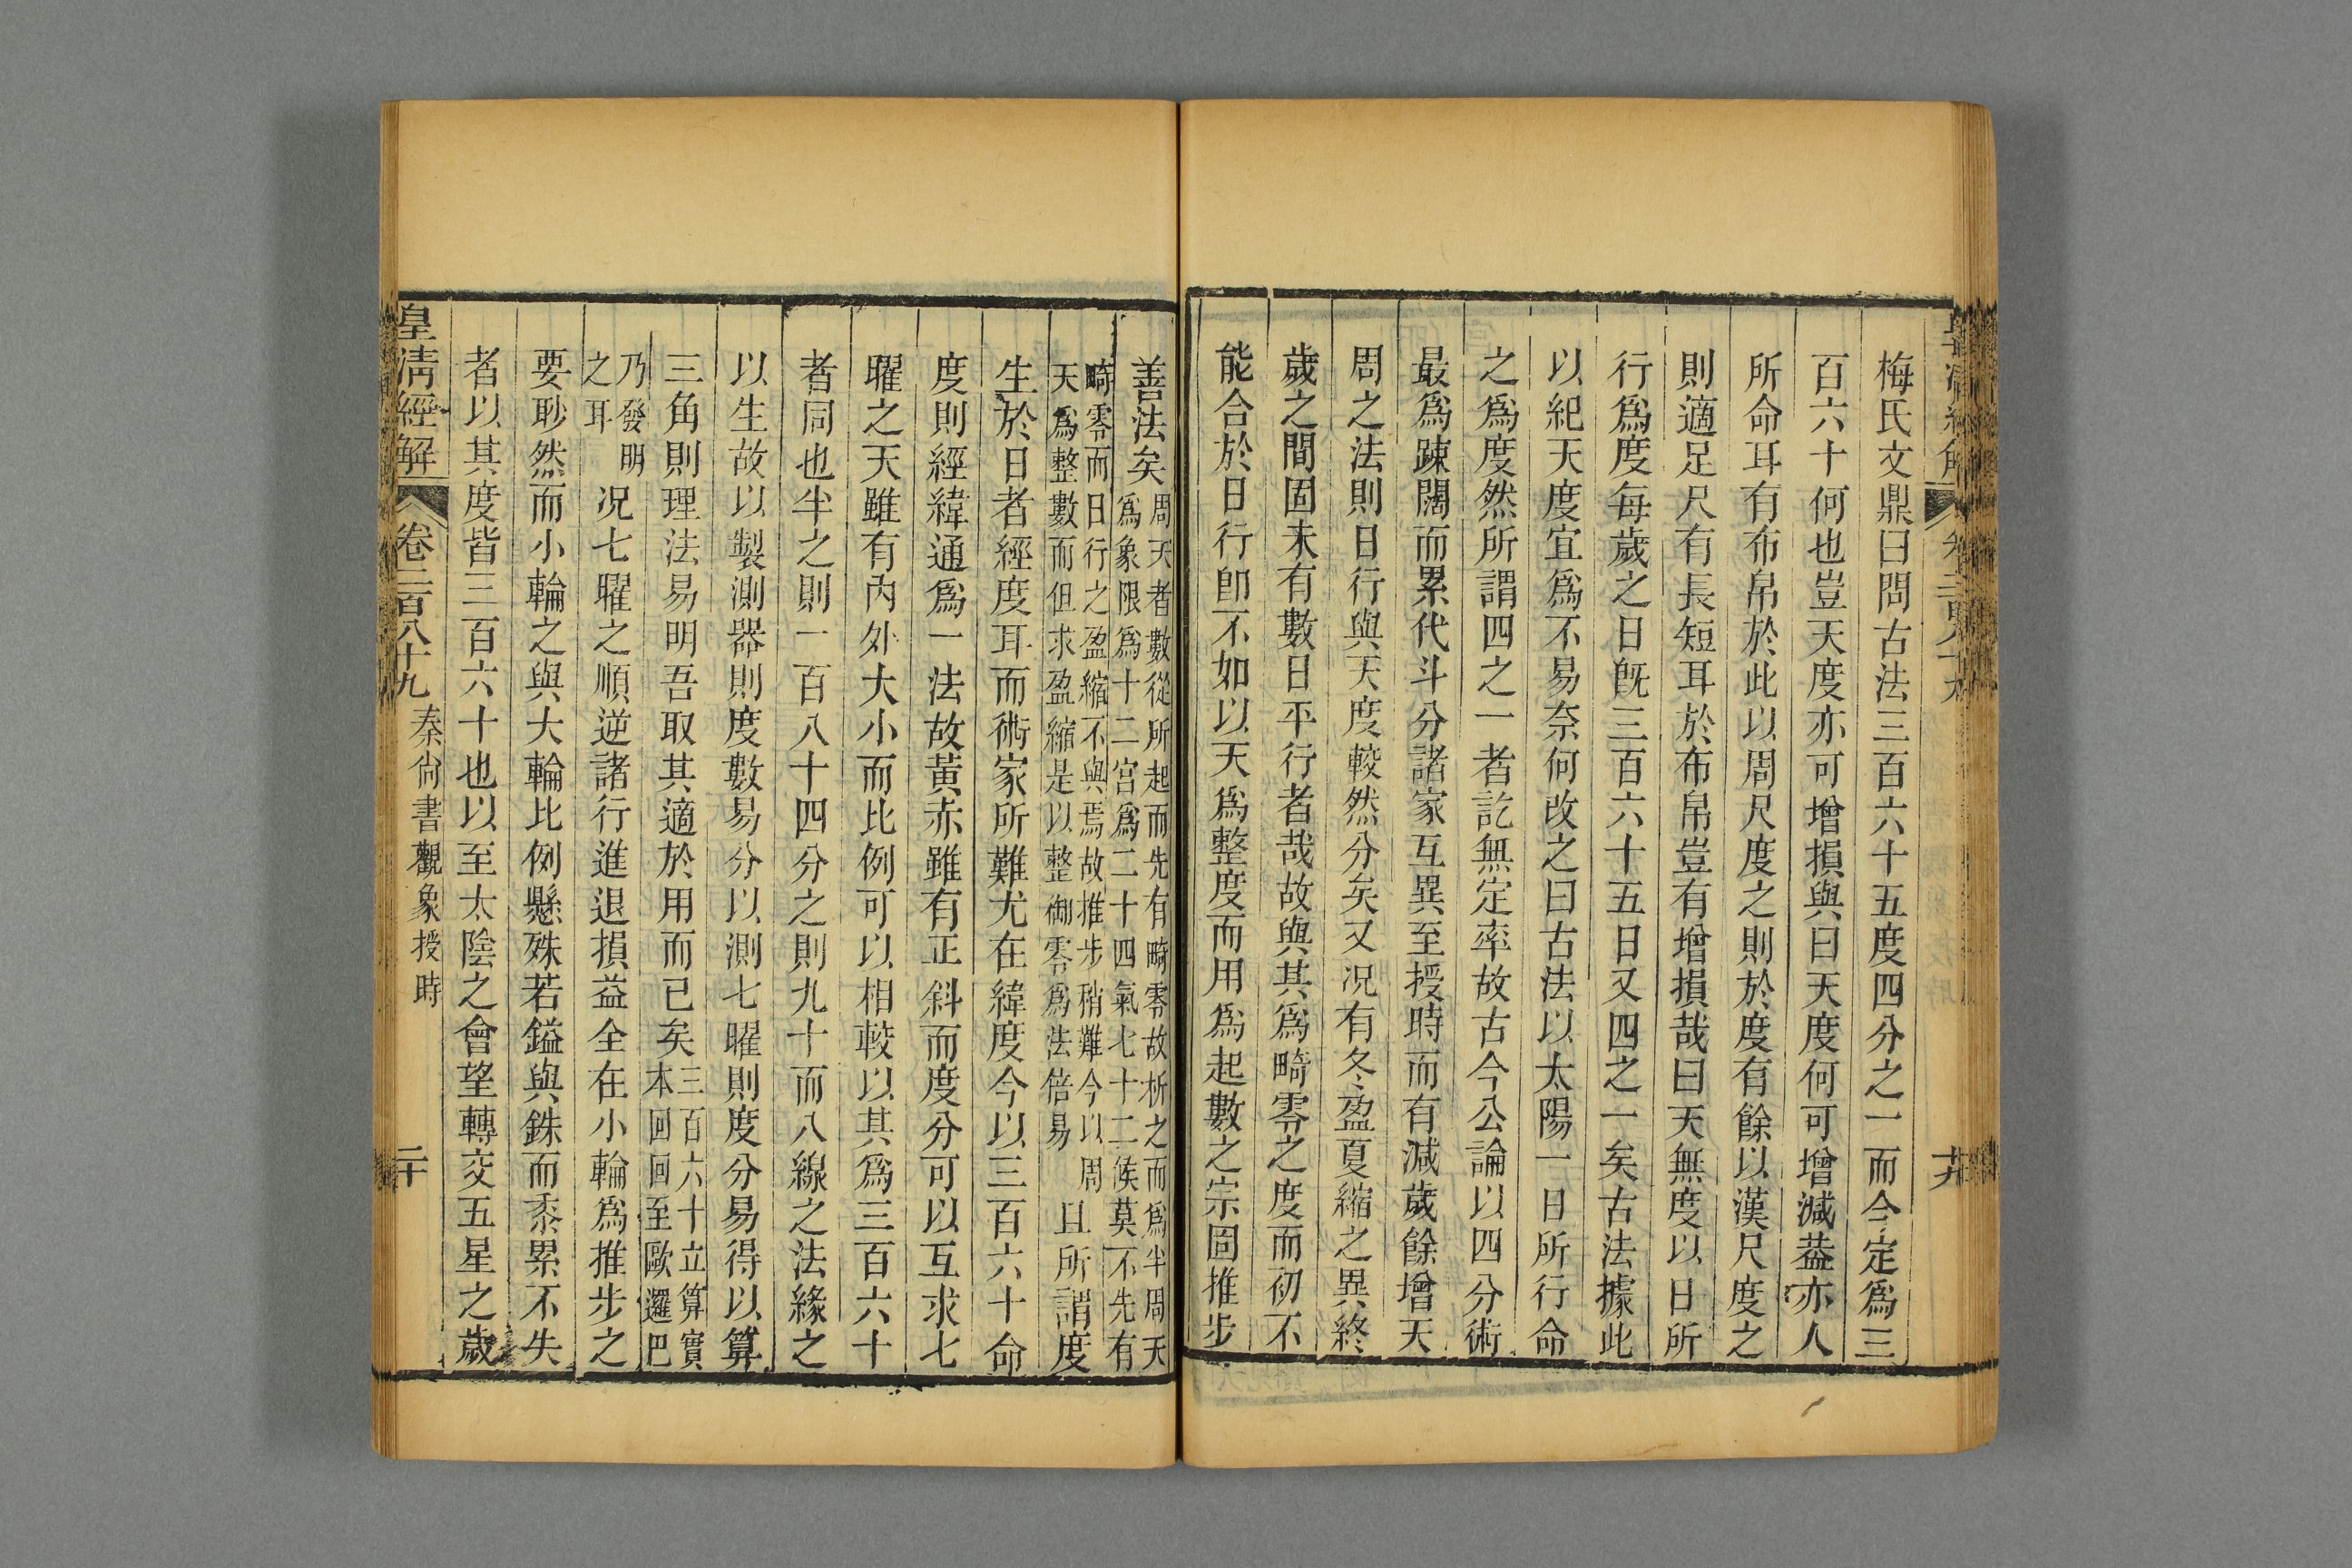 梅氏文鼎曰問古法三百六十五度四分之一而今定爲三
百六十何也豈天度亦可增損與曰天度何可增減葢亦人
所命耳有布帛於此以周尺度之則於度有餘以漢尺度之
則適足尺有長短耳於布帛豈有增損哉曰天無度以日所
行爲度每歲之日旣三百六十五日又四之一矣古法據此
以紀天度宜爲不易奈何改之曰古法以太陽一日所行命
之爲度然所謂四之一者訖無定率故古今公論以四分術
最爲踈闊而累代斗分諸家互異至授時而有減歲餘增天
周之法則日行與天度較然分矣又况有冬盈夏縮之異終
歲之間固未有數日平行者哉故與其爲畸零之度而初不
能合於日行卽不如以天爲整度而用爲起數之宗固推步
善法矣周天者數從所起而先有畸零故析之而爲半周天
爲象限爲十二宮爲二十四氣七十二候莫不先有
畸零而日行之盈縮不與焉故推步稍難今以周
天爲整數而但求盈縮是以整御零爲法倍易且所謂度
生於日者經度耳而術家所難尤在緯度今以三百六十命
度則經緯通爲一法故黃赤雖有正斜而度分可以互求七
曜之天雖有內外大小而比例可以相較以其爲三百六十
者同也半之則一百八十四分之則九十而八線之法緣之
以生故以製測器則度數易分以測七曜則度分易得以算
三角則理法易明吾取其適於用而已矣三百六十立算實
本回回至歐邏巴
乃發明
之耳况七曜之順逆諸行進退損益全在小輪爲推步之
要眇然而小輪之與大輪比例懸殊若鎰與銖而黍累不失
者以其度皆三百六十也以至太陰之會望轉交五星之歲
皇淸經解 卷二百八十九 秦尙書觀象授時 二十